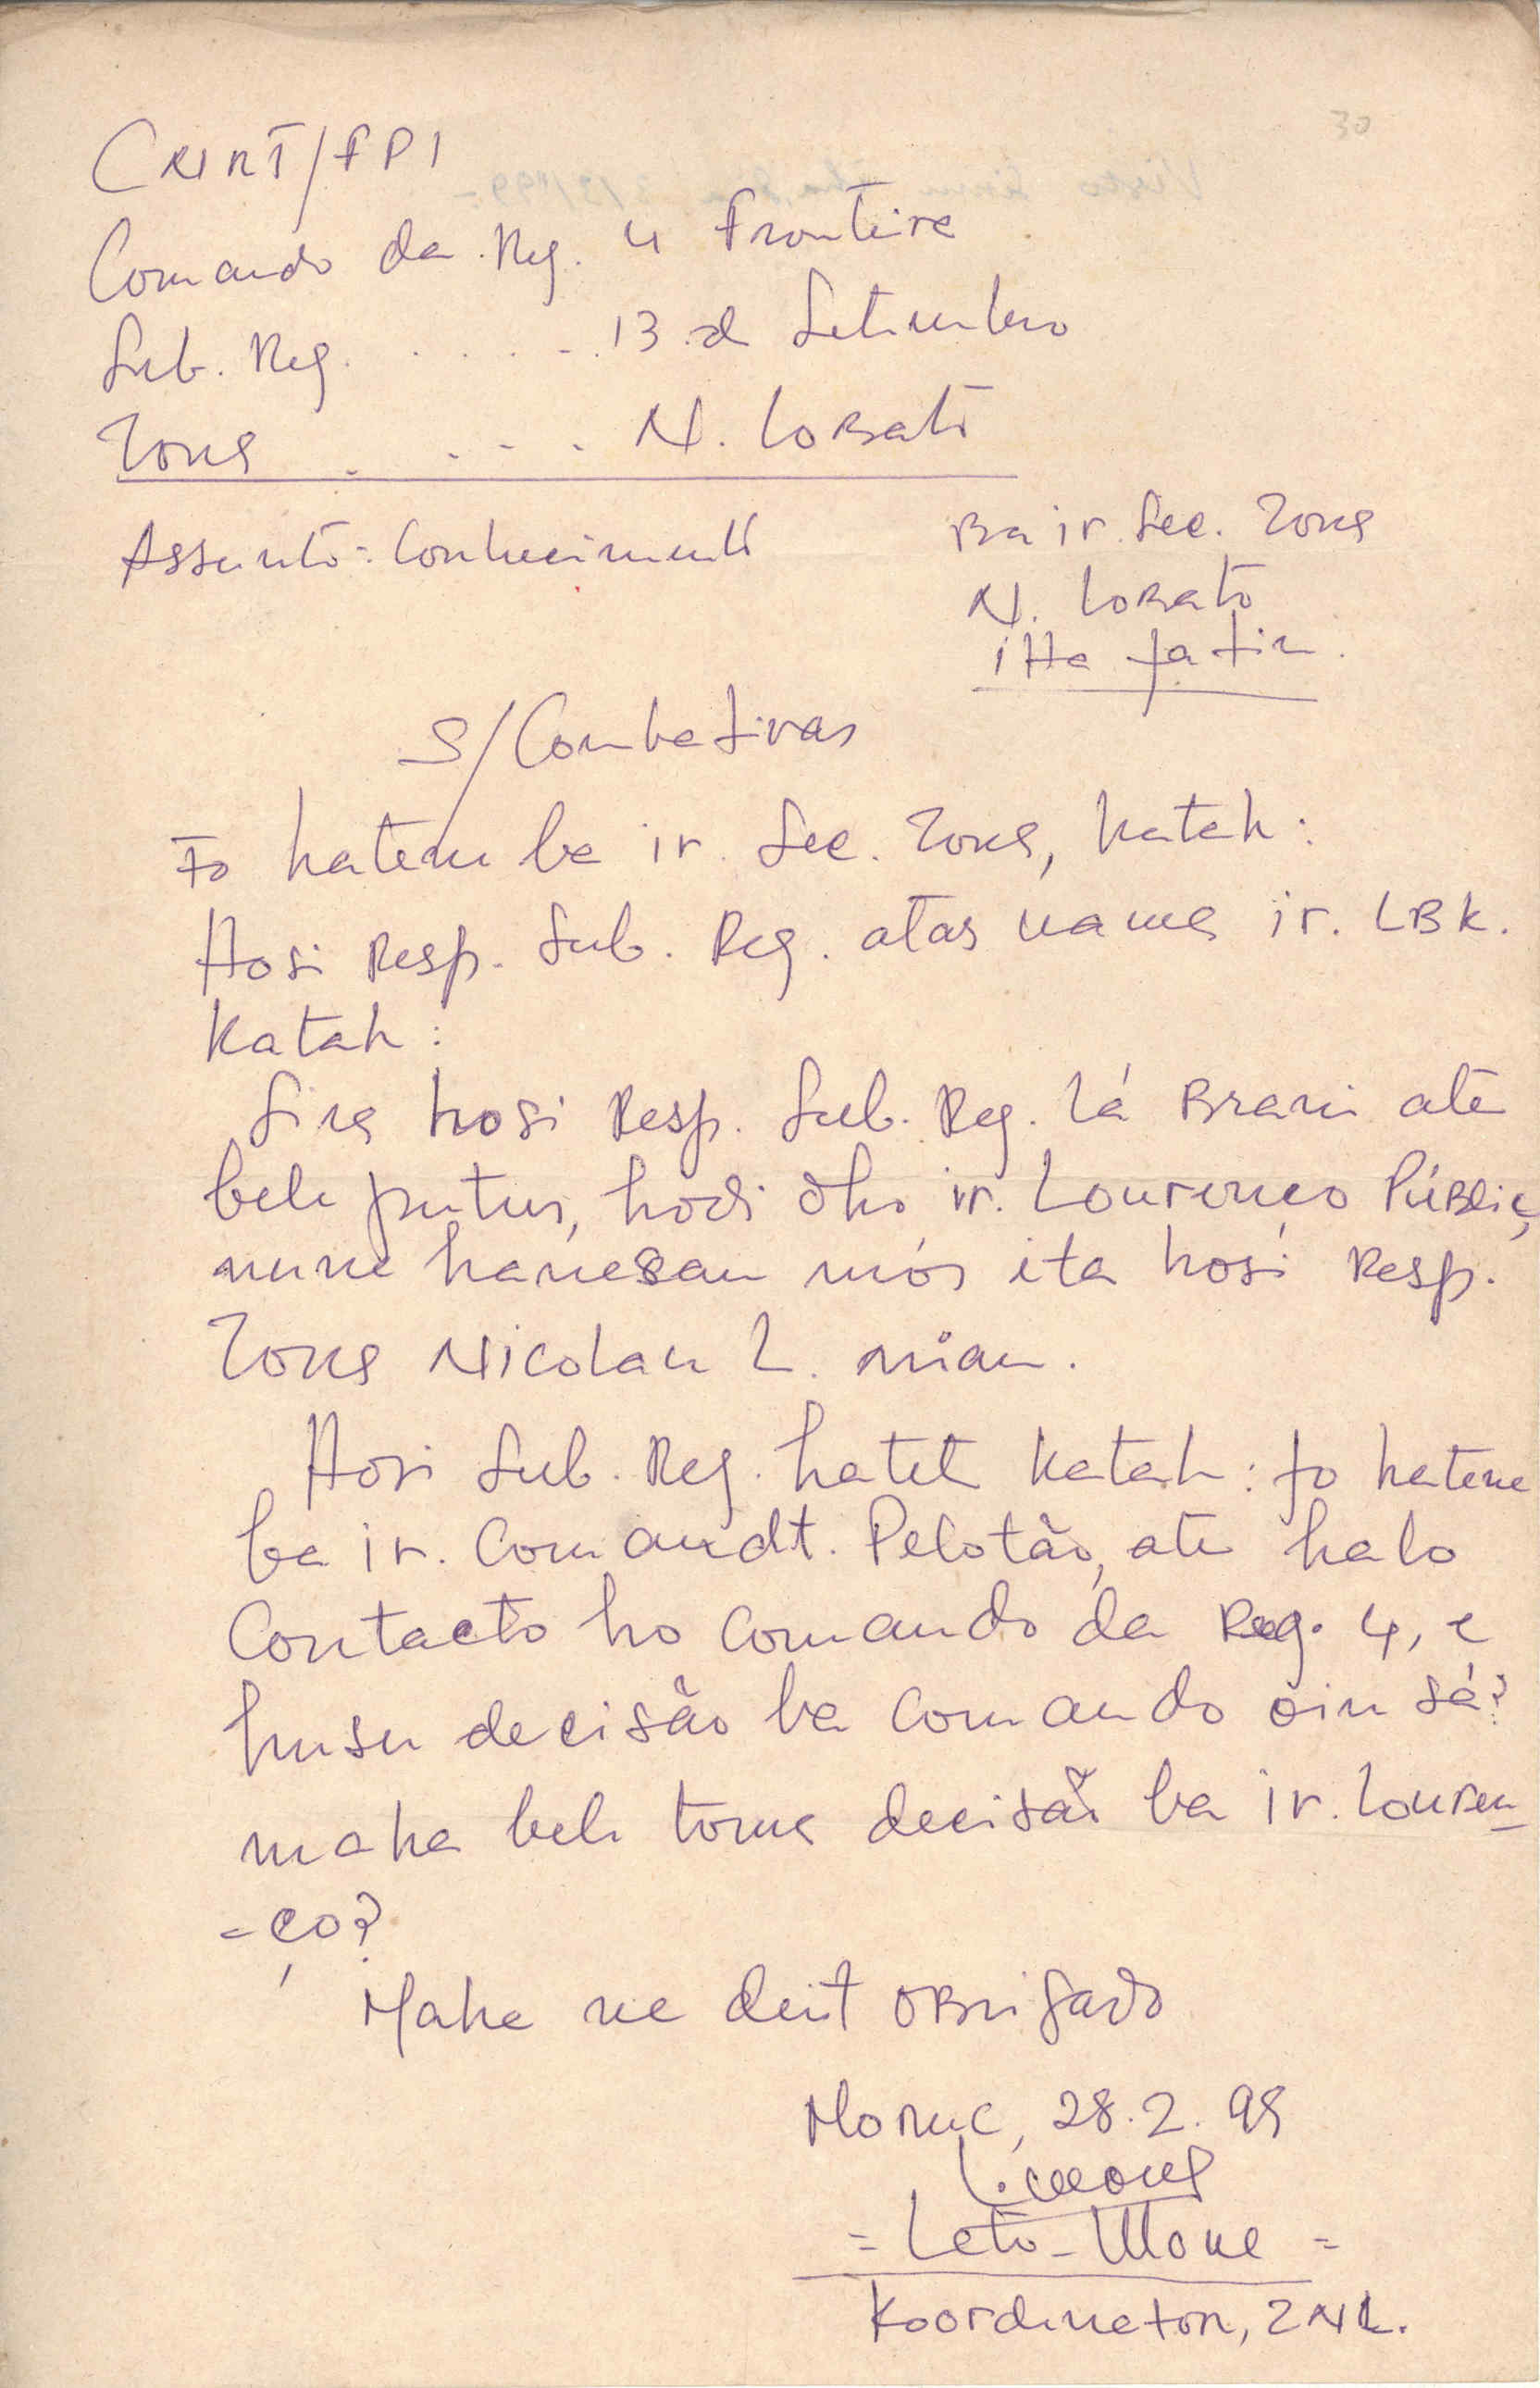 30
CNRT/FPI
Comando da Reg. 4 Fronteira
Sub. Reg. . . . . . 13 d Setimbro
Zona . . . . N. Lobato
Assunto: Conhecimento
Ba ir. Sec. Zona
N. Lobato
iHa fatin.
S/Combativas
Fo hatene ba ir. Sec. Zona, katak:
Hosi Resp. Sub. Reg. atas nama ir. LBK.
Katak:
Sira hosi Resp. Sub. Reg. lá Brani ate
bele putus, hodi oho ir. Lourenço Públiç
nune hanesan mós ita hosi Resp.
Zona Nicolau L. mian.
Hosi Sub. Reg. hatet katak: fo hatene
ba ir. Comandt. Pelotão, ate halo
Contacto ho Comando da Reg. 4, e
husu decisão ba Comando oin sá?
maka bele toma decisão ba ir. Louren_
=ço?
Maka ne deit obrigado
Moruc, 28.2.99
= Leto-Mone =
Koordinator, ZNL.